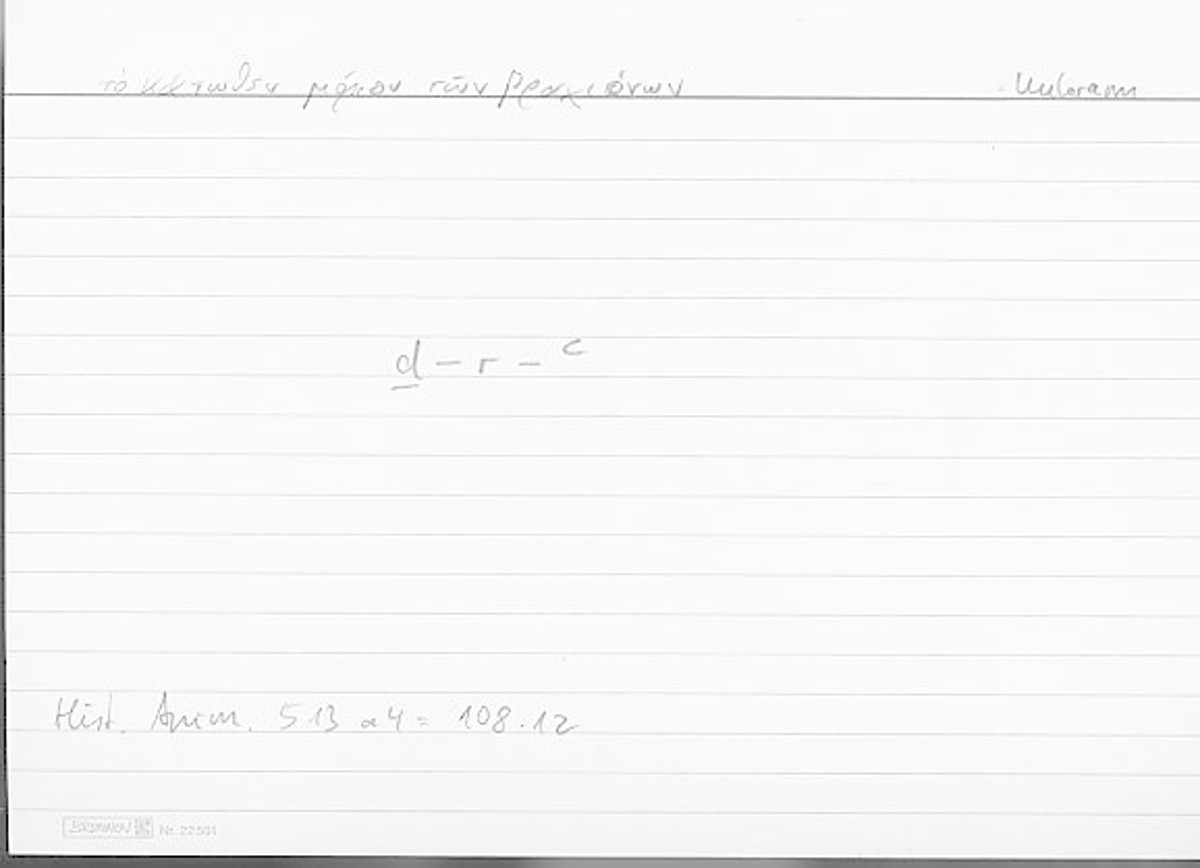 τὸ κάτωθεν μόριον τῶν βραχιόνων Unterarm
d - r - c
Hist. Anim. 513 a 4 = 108.12
BRUNNEN Nr. 22501